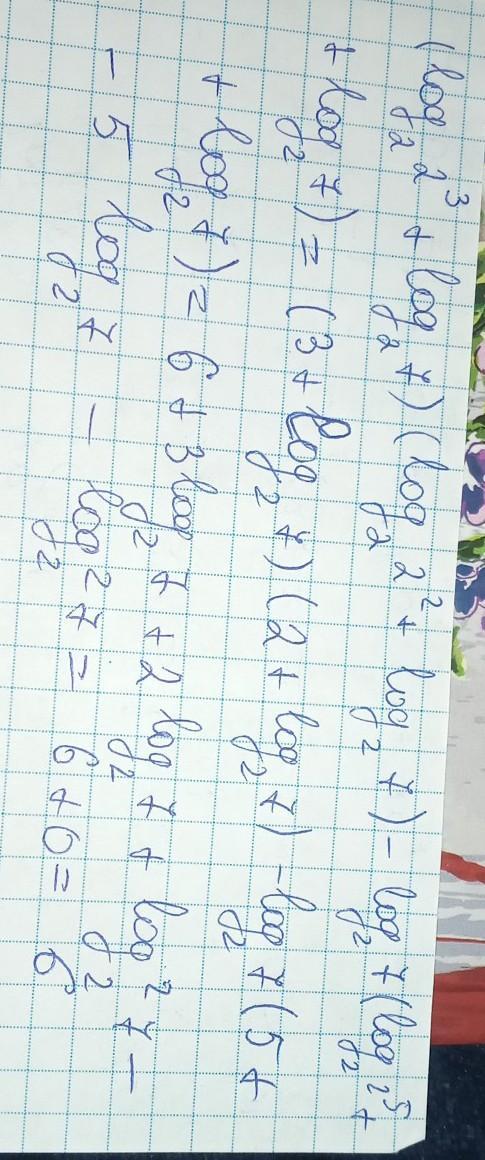 (log₂ 2³ + log₂ 7)(log₂ 2² + log₂ 7) − log₂ 7 (log₂ 2⁵ +
+ log₂ 7) = (3 + log₂ 7)(2 + log₂ 7) − log₂ 7 (5 +
+ log₂ 7) = 6 + 3 log₂ 7 + 2 log₂ 7 + log₂² 7 −
− 5 log₂ 7 − log₂² 7 = 6 + 0 = 6